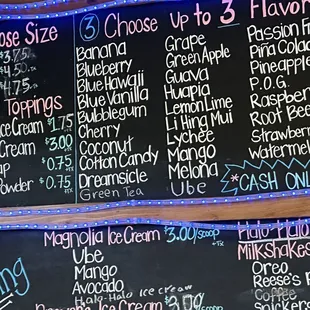 ose Size
3.75
4.50
4.75
Toppings
ce Cream $1.75
Cream $3.00
ap $0.75
Powder $0.75
3 Choose Up to 3 Flavor
Banana
Blueberry
Blue Hawaii
Blue Vanilla
Bubblegum
Cherry
Coconut
Cotton Candy
Dreamsicle
Green Tea
Grape
Green Apple
Guava
Huapia
Lemon Lime
Li Hing Mui
Lychee
Mango
Melona
Ube
Passion F
Piña Colad
Pineapple
P.O.G.
Raspber
Root Bee
Strawber
Waterme
*CASH ONL
ng
Magnolia Ice Cream $3.00/scoop
+Tx
Ube
Mango
Avocado
Halo-Halo ice cream
Ice Cream $3.00
Halo Halo
Milkshakes
Oreo
Reese's
Coffee
Snickers